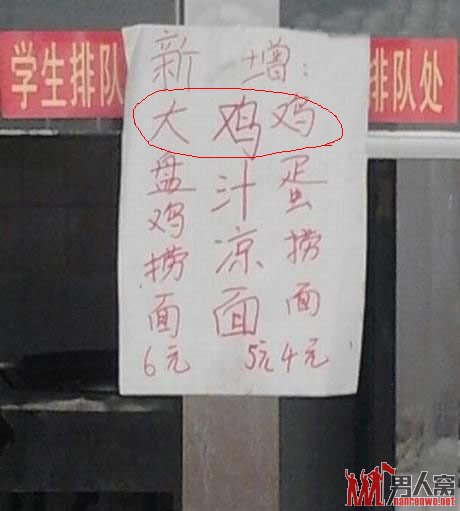 学生排队
排队处
新增:
大盘鸡捞面
6元
鸡汁凉面
5元
鸡蛋捞面
4元
男人窝
nanrenwo.net